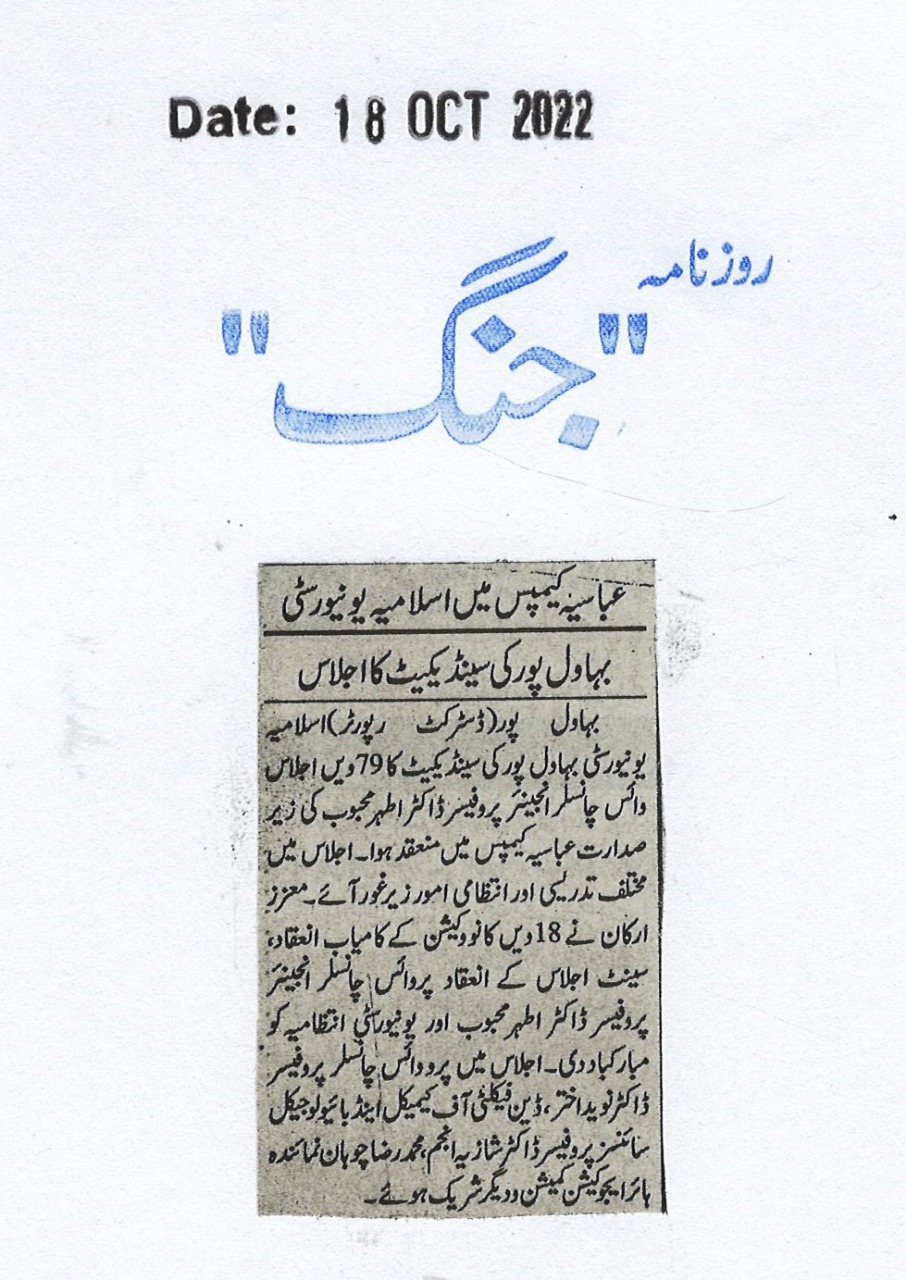 Date: 18 OCT 2022
روزنامہ
"جنگ"
عباسیہ کیمپس میں اسلامیہ یونیورسٹی
بہاول پور کی سینڈیکیٹ کا اجلاس
بہاول پور(ڈسٹرکٹ رپورٹر)اسلامیہ
یونیورسٹی بہاول پور کی سینڈیکیٹ کا 79ویں اجلاس
وائس چانسلر انجینئر پروفیسر ڈاکٹر اطہر محبوب کی زیر
صدارت عباسیہ کیمپس میں منعقد ہوا۔ اجلاس میں
مختلف تدریسی اور انتظامی امور زیر غور آئے۔ معزز
ارکان نے 18ویں کانووکیشن کے کامیاب انعقاد،
سینٹ اجلاس کے انعقاد پر وائس چانسلر انجینئر
پروفیسر ڈاکٹر اطہر محبوب اور یونیورسٹی انتظامیہ کو
مبارکباد دی۔ اجلاس میں پرو وائس چانسلر پروفیسر
ڈاکٹر نوید اختر، ڈین فیکلٹی آف کیمیکل اینڈ بائیولوجیکل
سائنسز پروفیسر ڈاکٹر شازیہ انجم، محمد رضا چوہان نمائندہ
ہائر ایجوکیشن کمیشن و دیگر شریک ہوئے۔